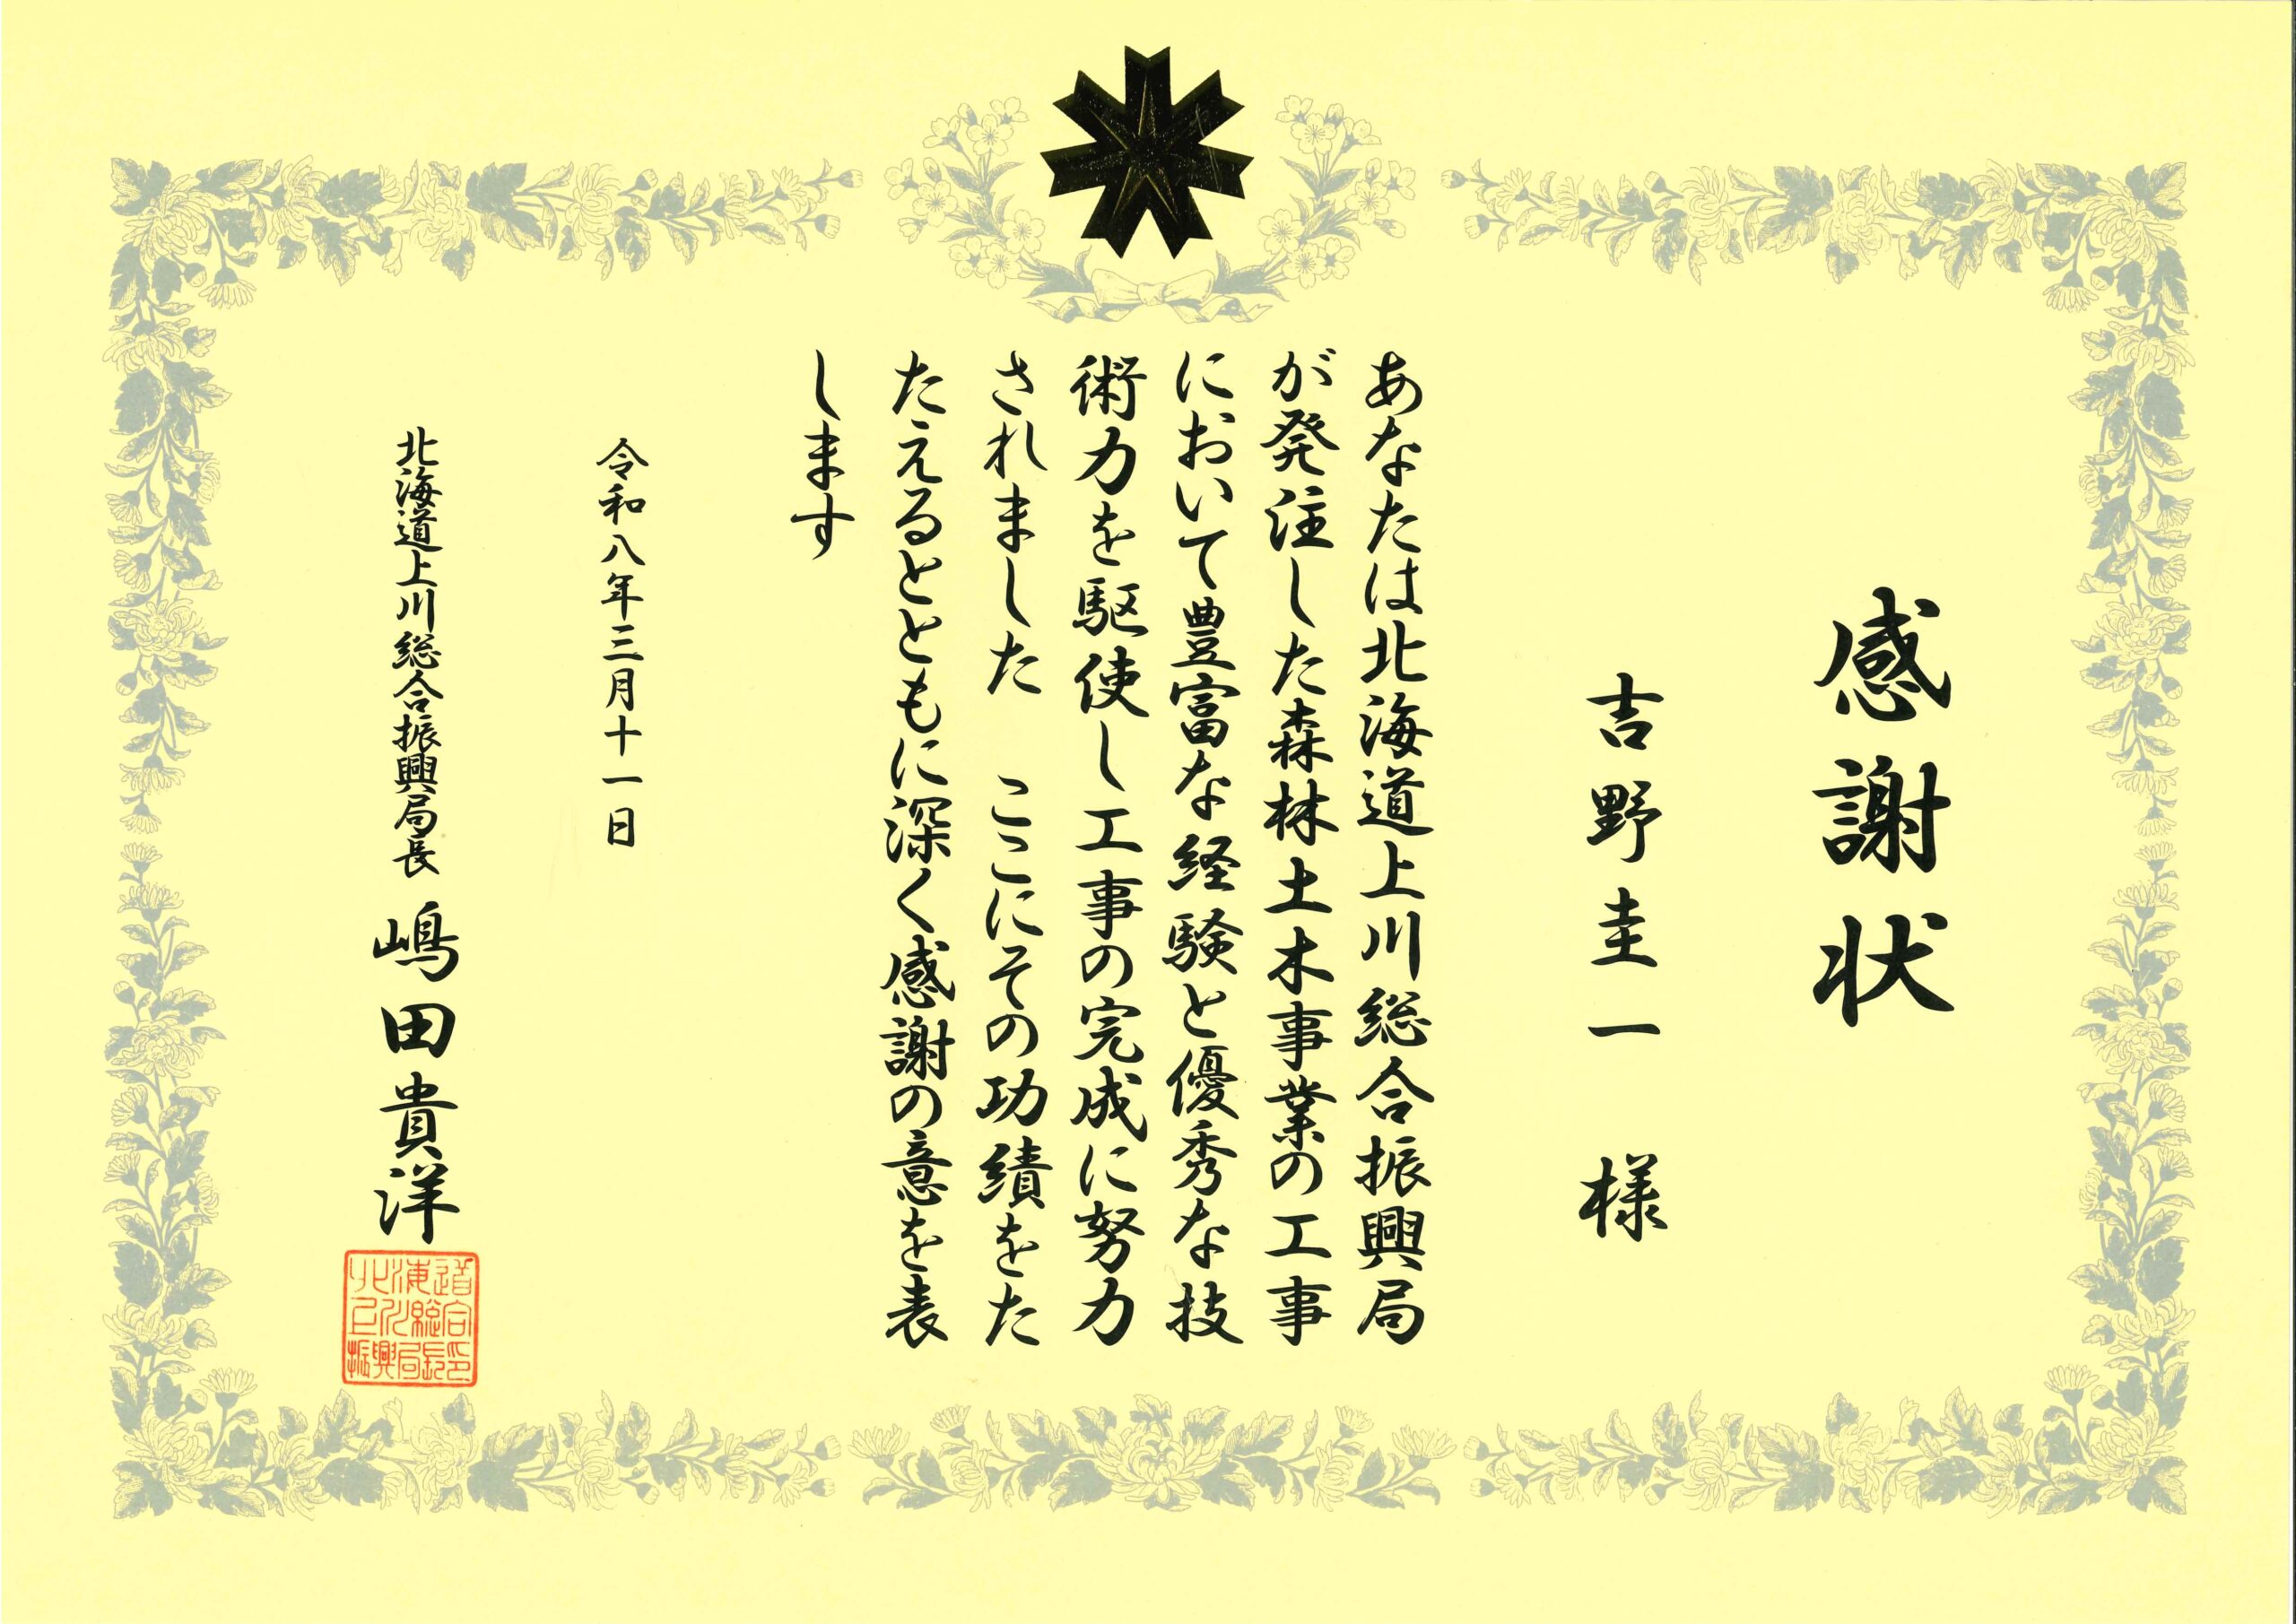 感謝状
吉野圭一 様
あなたは北海道上川総合振興局
が発注した森林土木事業の工事
において豊富な経験と優秀な技
術力を駆使し工事の完成に努力
されました ここにその功績をた
たえるとともに深く感謝の意を表
します
令和八年三月十一日
北海道上川総合振興局長 嶋田貴洋
北海道
上川総合
振興局長印